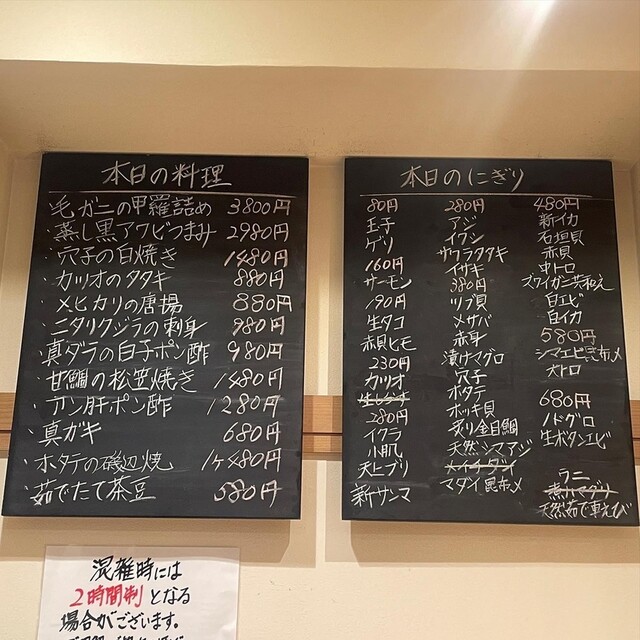 本日の料理
・毛ガニの甲羅詰め 3800円
・蒸し黒アワビつまみ 2980円
・穴子の白焼き 1480円
・カツオのタタキ 880円
・メヒカリの唐揚 880円
・ニタリクジラの刺身 980円
・真ダラの白子ポン酢 980円
・甘鯛の松笠焼き 1480円
・アン肝ポン酢 1280円
・真ガキ 680円
・ホタテの磯辺焼 1ケ480円
・茹でたて茶豆 580円
本日のにぎり
80円
玉子
ゲソ
160円
サーモン
190円
生タコ
赤貝ヒモ
230円
カツオ
280円
イクラ
小肌
天上ブリ
新サンマ
280円
アジ
イワシ
サワラタタキ
イサキ
380円
ツブ貝
メサバ
赤身
漬けマグロ
穴子
ホタテ
ホッキ貝
炙り金目鯛
天然シマアジ
マダイ昆布〆
480円
新イカ
石垣貝
赤貝
中トロ
ズワイガニ芥和え
白エビ
白イカ
580円
シマエビ昆布〆
大トロ
680円
ノドグロ
生ボタンエビ
ウニ
煮ハマグリ
天然茹で車えび
混雑時には
2時間制となる
場合がございます。